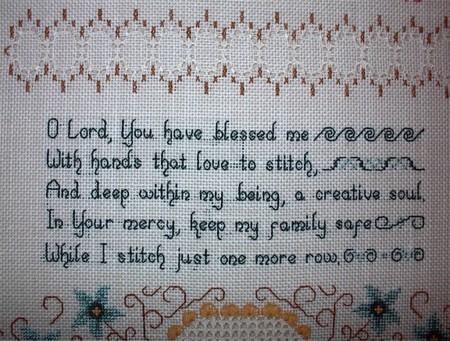 O Lord, You have blessed me
With hands that love to stitch,
And deep within my being, a creative soul.
In Your mercy, keep my family safe
While I stitch just one more row.